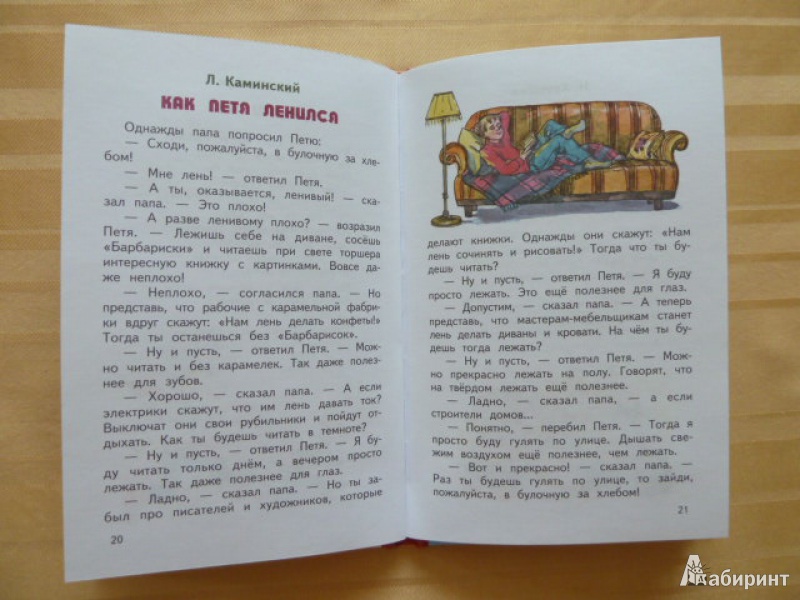 Л. Каминский
КАК ПЕТЯ ЛЕНИЛСЯ
Однажды папа попросил Петю:
— Сходи, пожалуйста, в булочную за хле-
бом!
— Мне лень! — ответил Петя.
— А ты, оказывается, ленивый! — ска-
зал папа. — Это плохо!
— А разве ленивому плохо? — возразил
Петя. — Лежишь себе на диване, сосёшь
«Барбариски» и читаешь при свете торшера
интересную книжку с картинками. Вовсе да-
же неплохо!
— Неплохо, — согласился папа. — Но
представь, что рабочие с карамельной фабри-
ки вдруг скажут: «Нам лень делать конфеты!»
Тогда ты останешься без «Барбарисок».
— Ну и пусть, — ответил Петя. — Мож-
но читать и без карамелек. Так даже полез-
нее для зубов.
— Хорошо, — сказал папа. — А если
электрики скажут, что им лень давать ток?
Выключат они свои рубильники и пойдут от-
дыхать. Как ты будешь читать в темноте?
— Ну и пусть, — ответил Петя. — Я бу-
ду читать только днём, а вечером просто
лежать. Так даже полезнее для глаз.
— Ладно, — сказал папа. — Но ты за-
был про писателей и художников, которые
20
делают книжки. Однажды они скажут: «Нам
лень сочинять и рисовать!» Тогда что ты бу-
дешь читать?
— Ну и пусть, — ответил Петя. — Я буду
просто лежать. Это ещё полезнее для глаз.
— Допустим, — сказал папа. — А теперь
представь, что мастерам-мебельщикам станет
лень делать диваны и кровати. На чём ты бу-
дешь тогда лежать?
— Ну и пусть, — ответил Петя. — Мож-
но прекрасно лежать на полу. Говорят, что
на твёрдом лежать ещё полезнее.
— Ладно, — сказал папа, — а если
строители домов...
— Понятно, — перебил Петя. — Тогда я
просто буду гулять по улице. Дышать све-
жим воздухом ещё полезнее, чем лежать.
— Вот и прекрасно! — сказал папа. —
Раз ты будешь гулять по улице, то зайди,
пожалуйста, в булочную за хлебом!
21
Лабиринт